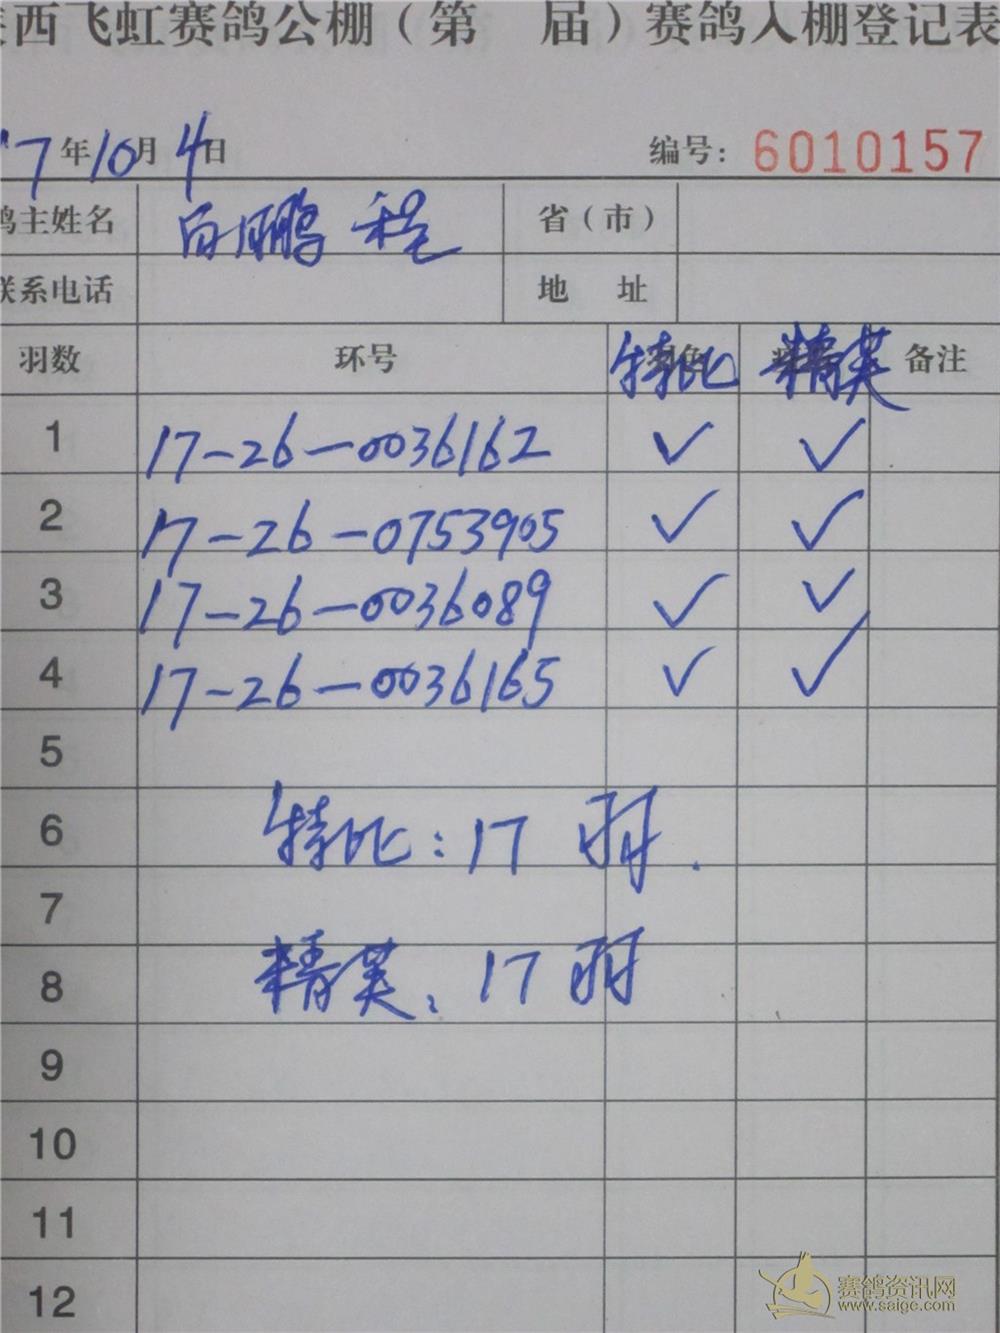 西飞虹赛鸽公棚（第 届）赛鸽入棚登记表
7年10月4日 编号：6010157
鸽主姓名 白鹏程 省（市）
联系电话 地 址
羽数 环号 特比 精英 备注
1 17-26-0036162 ✓ ✓
2 17-26-0753905 ✓ ✓
3 17-26-0036089 ✓ ✓
4 17-26-0036165 ✓ ✓
5
6 特比：17 羽.
7
8 精英：17 羽
9
10
11
12
赛鸽资讯网
www.saige.com